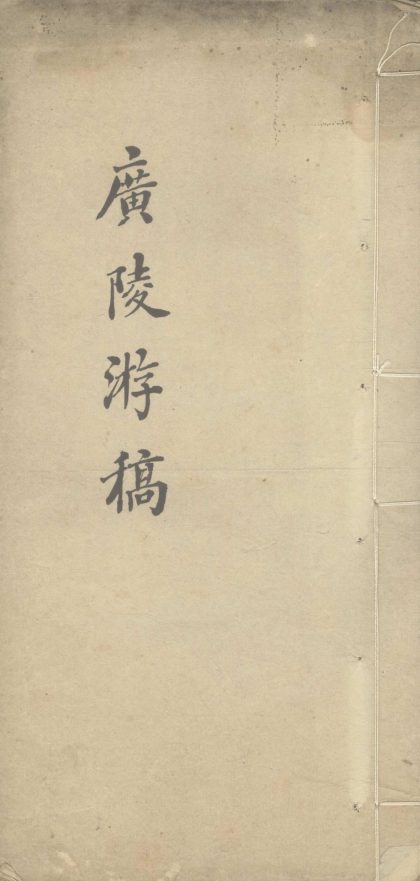 廣陵游稿